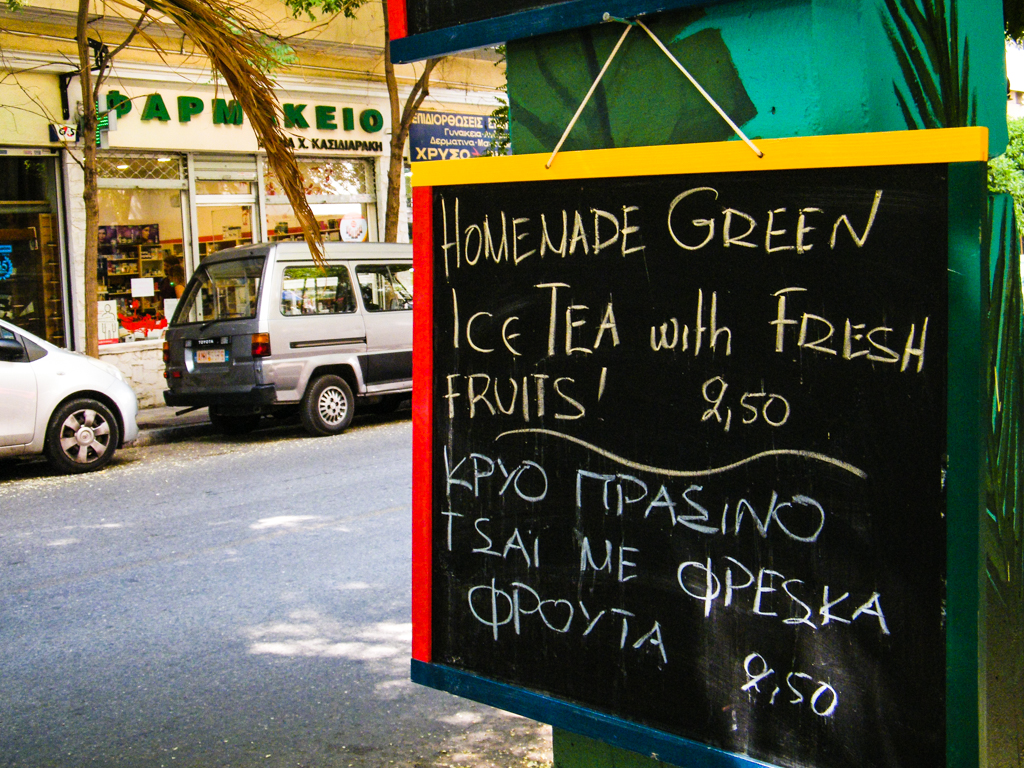 ΦΑΡΜΑΚΕΙΟ
Χ. ΚΑΣΙΔΙΑΡΑΚΗ
ΕΠΙΔΙΟΡΘΩΣΕΙΣ
Γυναικεία
Δερμάτινα
ΧΡΥΣΩ
TOYOTA
HOMEMADE GREEN
ICE TEA with FRESH
FRUITS! 2,50
ΚΡΥΟ ΠΡΑΣΙΝΟ
ΤΣΑΪ ΜΕ ΦΡΕΣΚΑ
ΦΡΟΥΤΑ
2,50